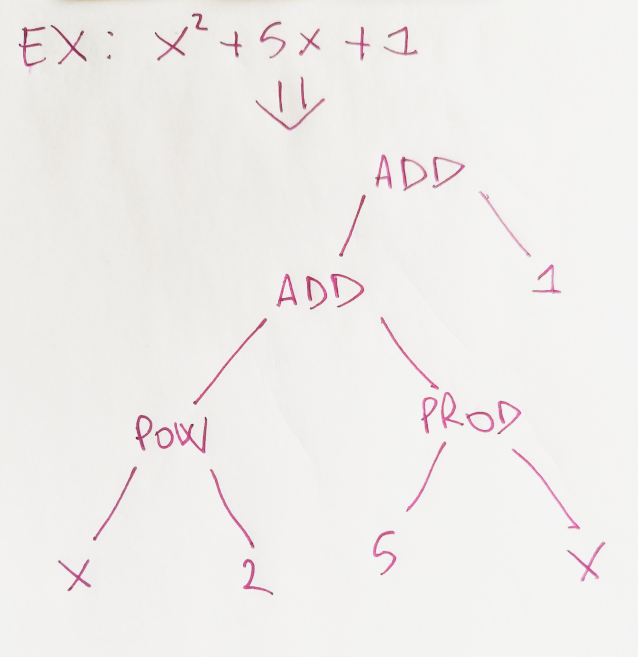 EX: x² + 5x + 1
ADD
ADD 1
POW PROD
x 2 5 x